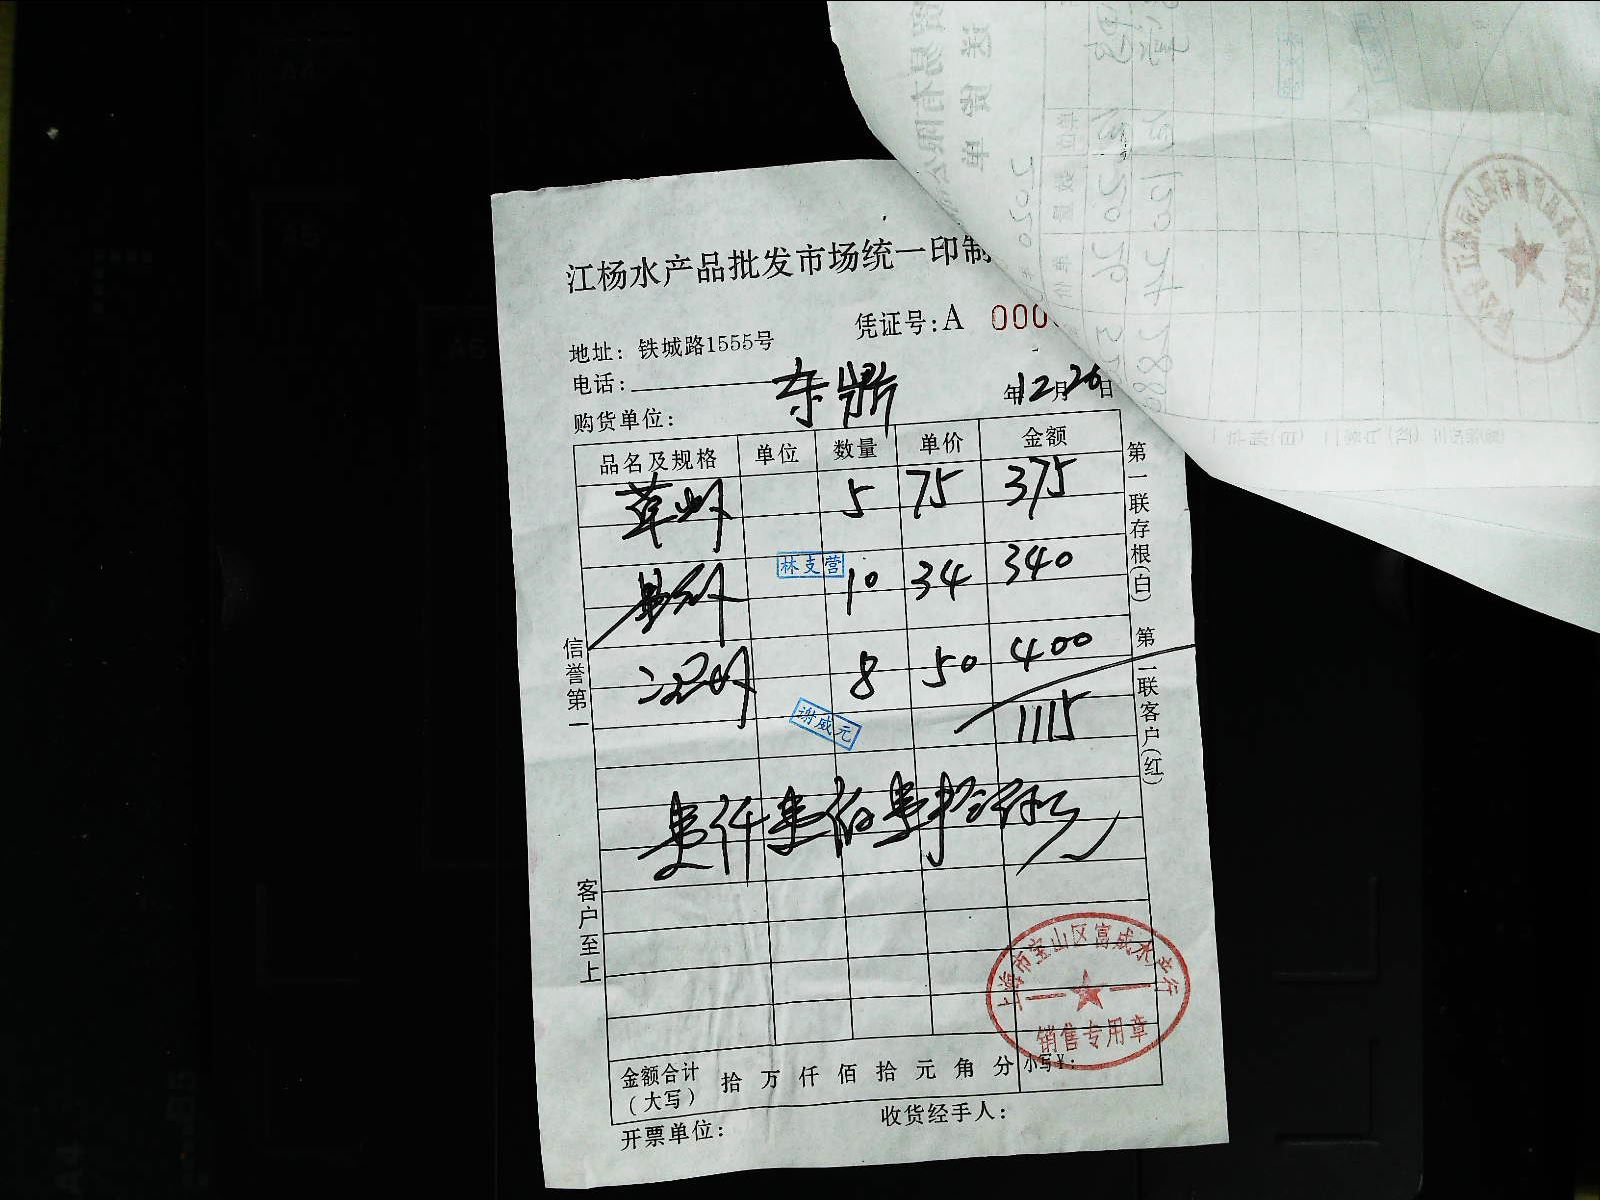 江杨水产品批发市场统一印制
凭证号:A 000
地址: 铁城路1555号
电话:
购货单位: 东鼎
年12月26日
品名及规格 单位 数量 单价 金额
草虾 5 75 375
10 34 340
8 50 400
1115
壹仟壹佰壹拾伍元
林支营
谢威元
信誉第一
客户至上
第一联存根(白) 第二联客户(红)
上海市宝山区富威水产行
销售专用章
金额合计(大写) 拾 万 仟 佰 拾 元 角 分 小写¥:
收货经手人:
开票单位: